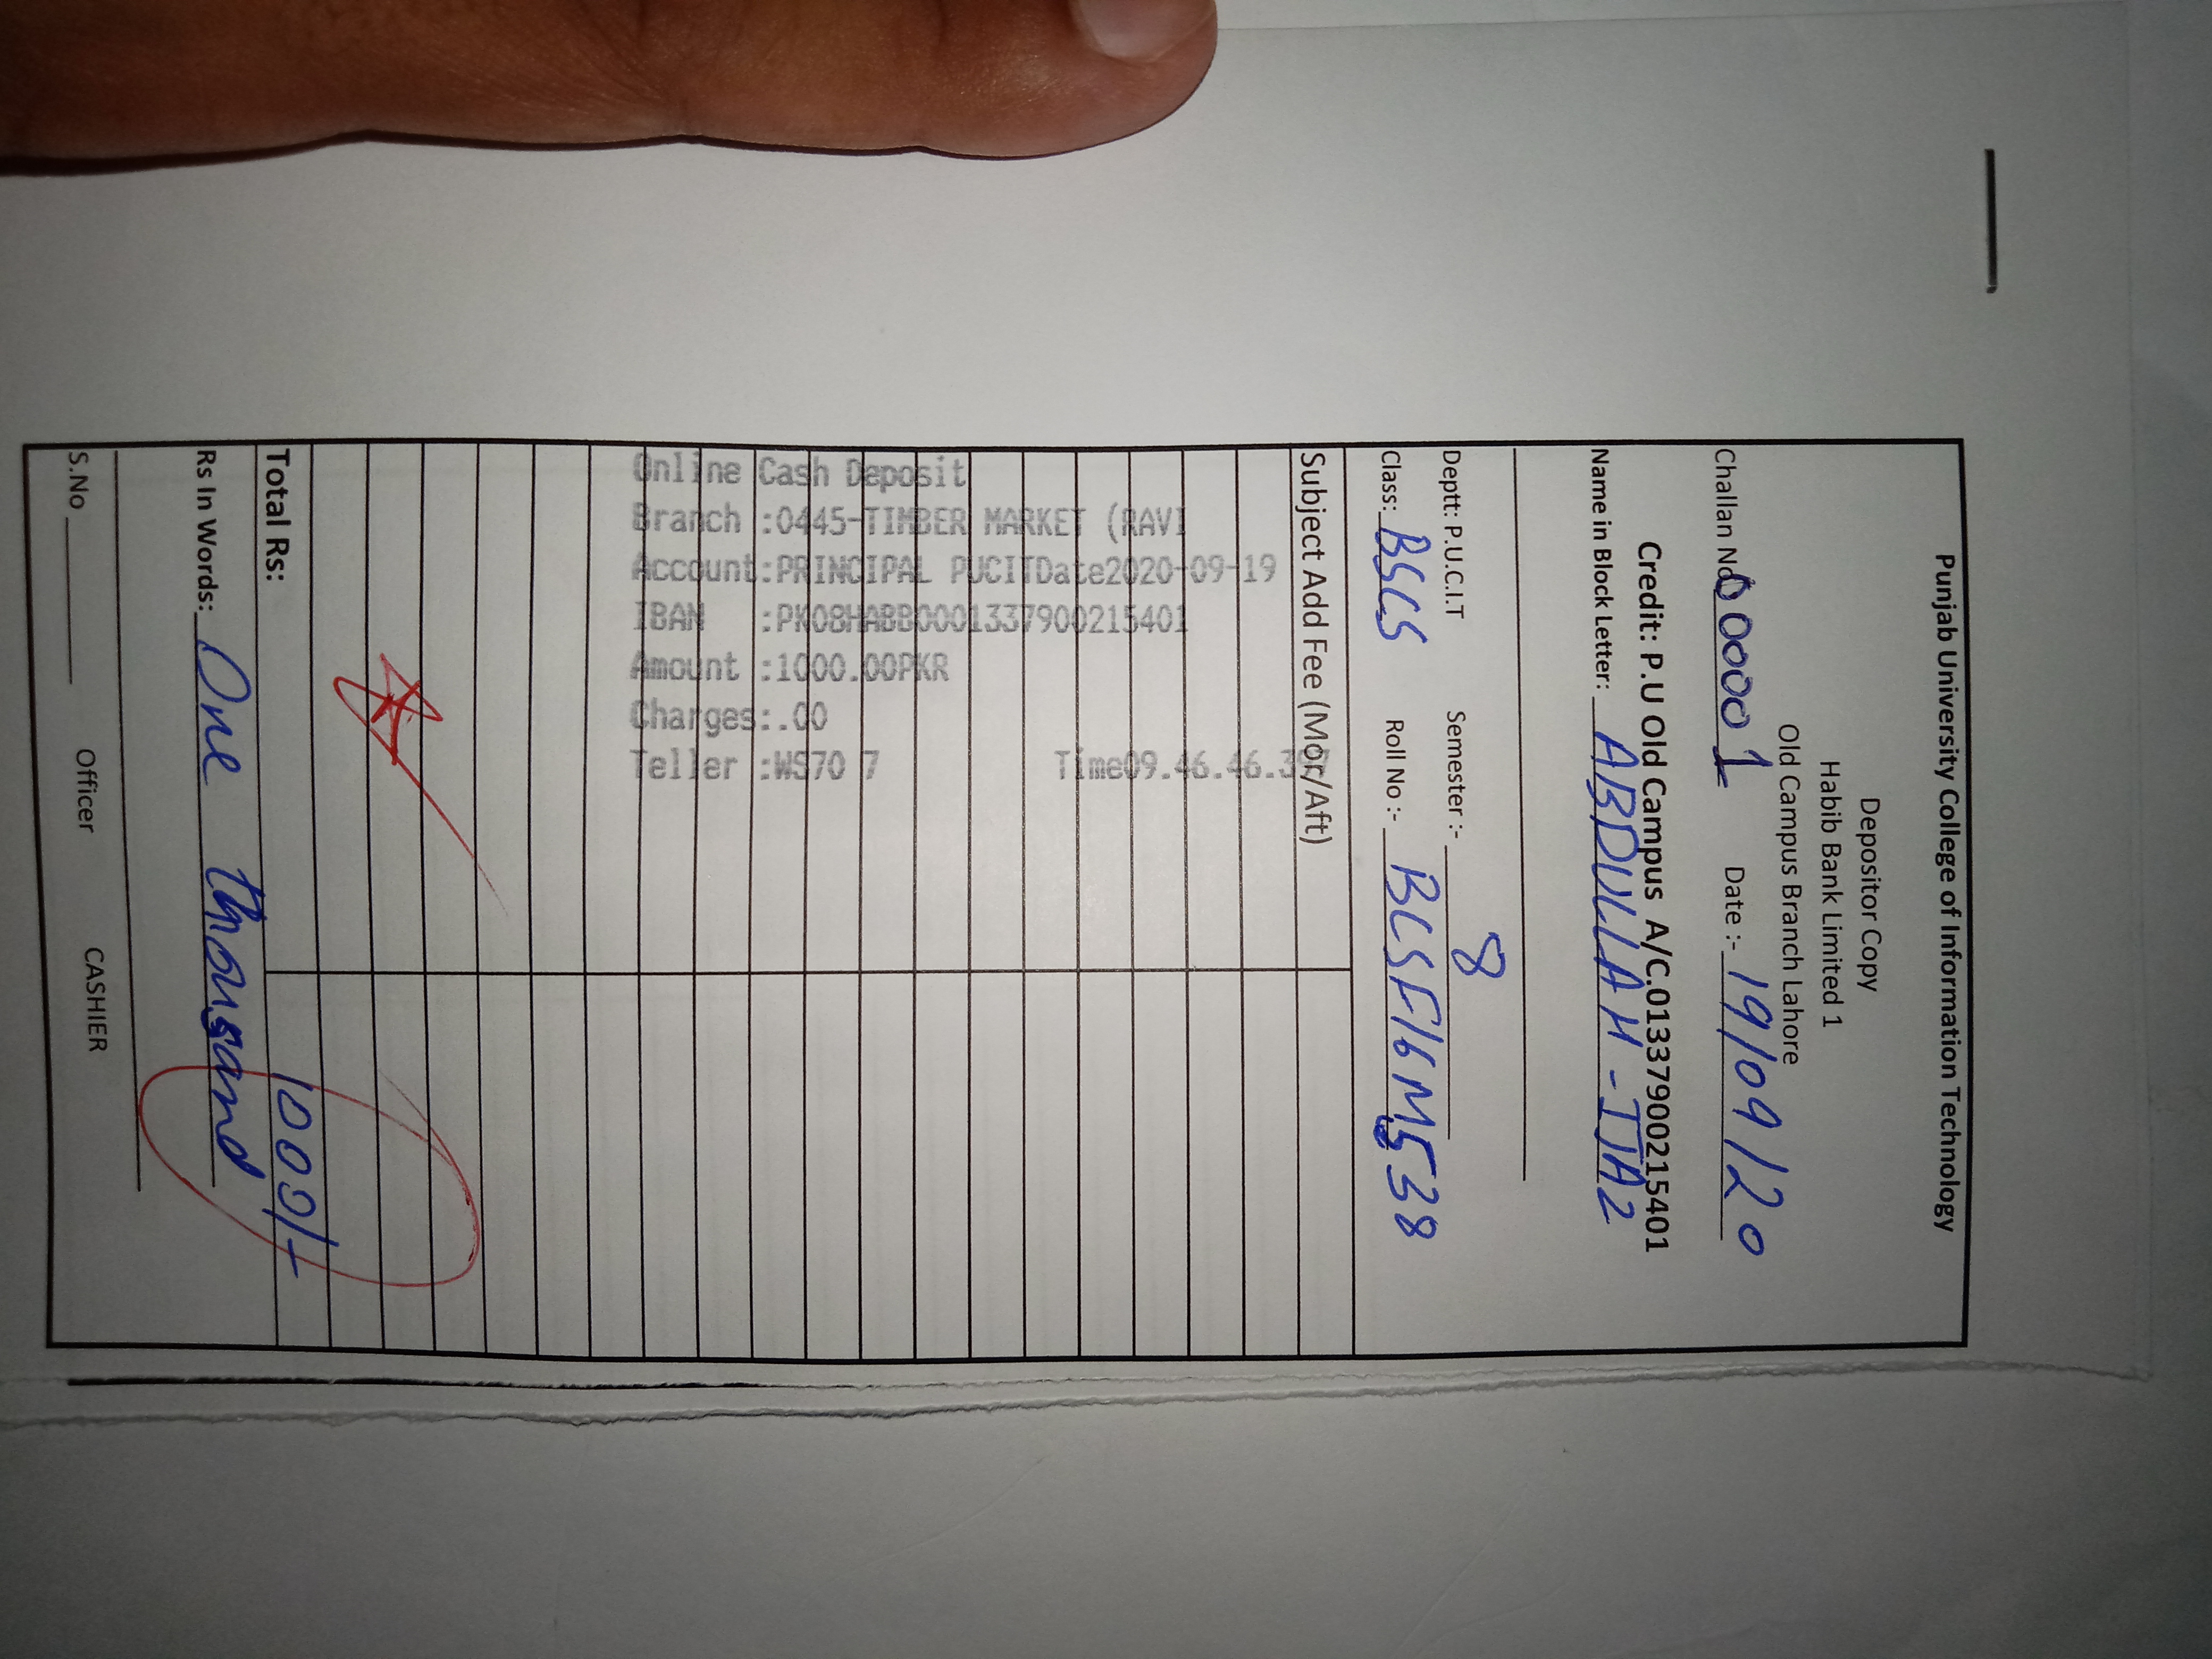 Punjab University College of Information Technology
Depositor Copy
Habib Bank Limited 1
Old Campus Branch Lahore
Challan No 00001 Date :- 19/09/20
Credit: P.U Old Campus A/C.01337900215401
Name in Block Letter: ABDULLAH -IJAZ
Deptt: P.U.C.I.T Semester :- 8
Class: BSCS Roll No :- BCSF16M538
Subject Add Fee (Mor/Aft)
Online Cash Deposit
Branch :0445-TIMBER MARKET (RAVI
Account:PRINCIPAL PUCITDate2020-09-19
IBAN :PK08HABB0001337900215401
Amount :1000.00PKR
Charges:.00
Teller :WS70 7 Time09.46.46.
Total Rs: 1000/-
Rs In Words: One thousand
S.No Officer CASHIER